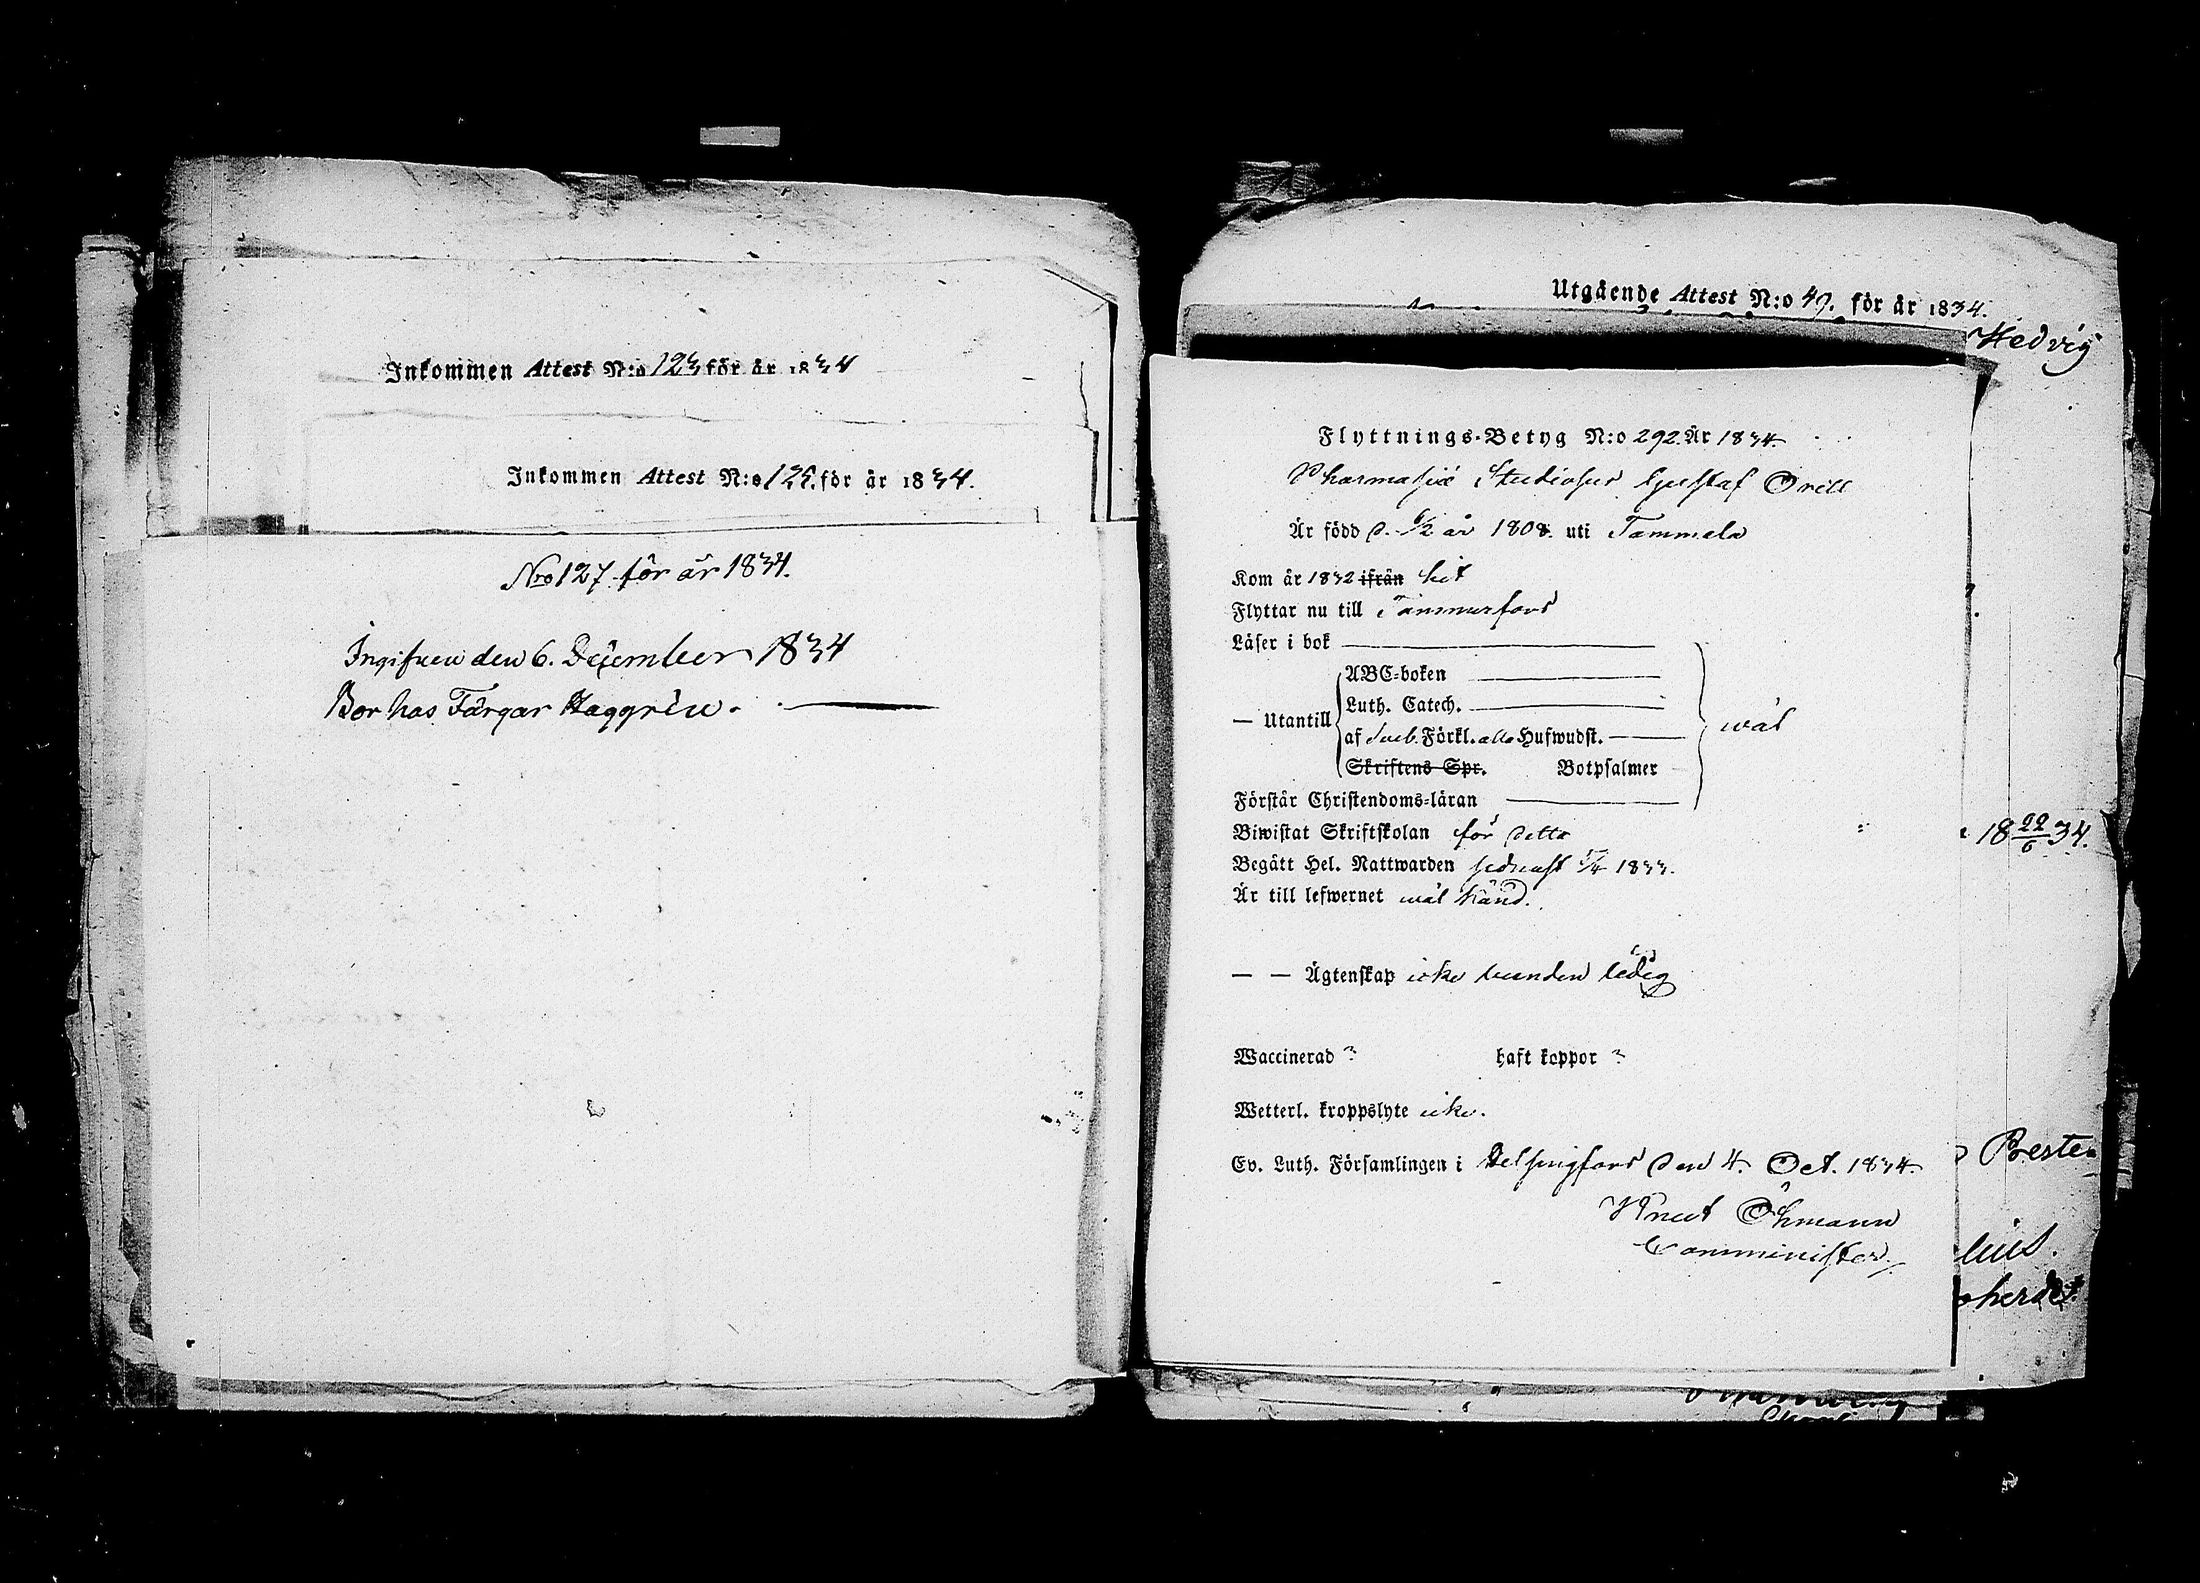 Inkommen Attest N:o 123 för år 1834
Inkommen Attest N:o 125. för år 1834.
N:o 127 för år 1834.
Ingifven den 6. December 1834
Bor hos Färgar Haggrén.
Utgående Attest N:o 49. för år 1834.
Hedvig
Flyttnings-Betyg N:o 292. År 1834.
Pharmasiæ Studiosus Gustaf Orell
Är född d. 6/2 år 1808. uti Tammela
Kom år 1832 ifrån hit
Flyttar nu till Tammerfors
Läser i bok
ABC-boken
Luth. Catech.
— Utantill
af Sveb. Förkl. alla Hufwudst.
wäl
Skriftens Spr. Botpsalmer
Förstår Christendoms-läran
Biwistat Skriftskolan för detta
Begått Hel. Nattwarden sednast 5/4 1833.
Är till lefwernet wäl känd.
— — Ägtenskap icke bunden ledig
Waccinerad ? haft koppor ?
Wetterl. kroppslyte icke.
Ev. Luth. Församlingen i Helsingfors den 4. Oct. 1834.
Knut Öhmann
Comminister.
18 22/6 34.
Beste-
lius.
oherde.